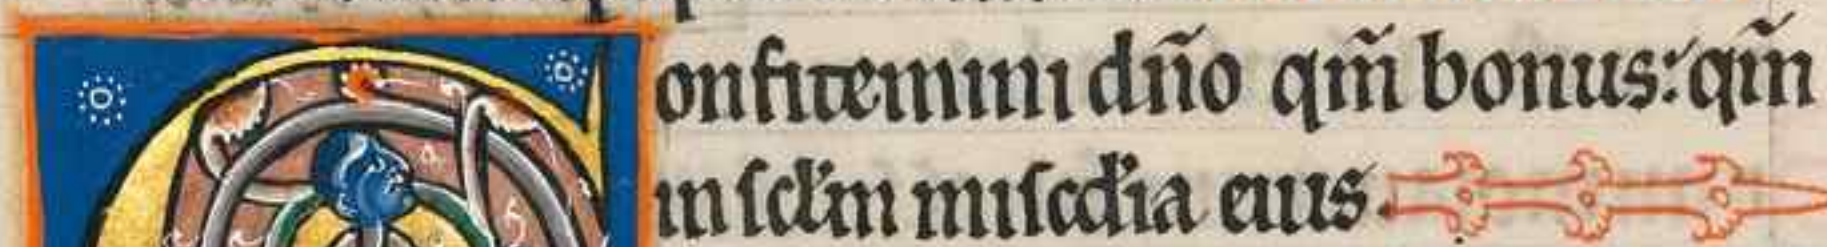 Confitemini dño qm̃ bonus: qm̃
in sclm̃ miscdia eius.